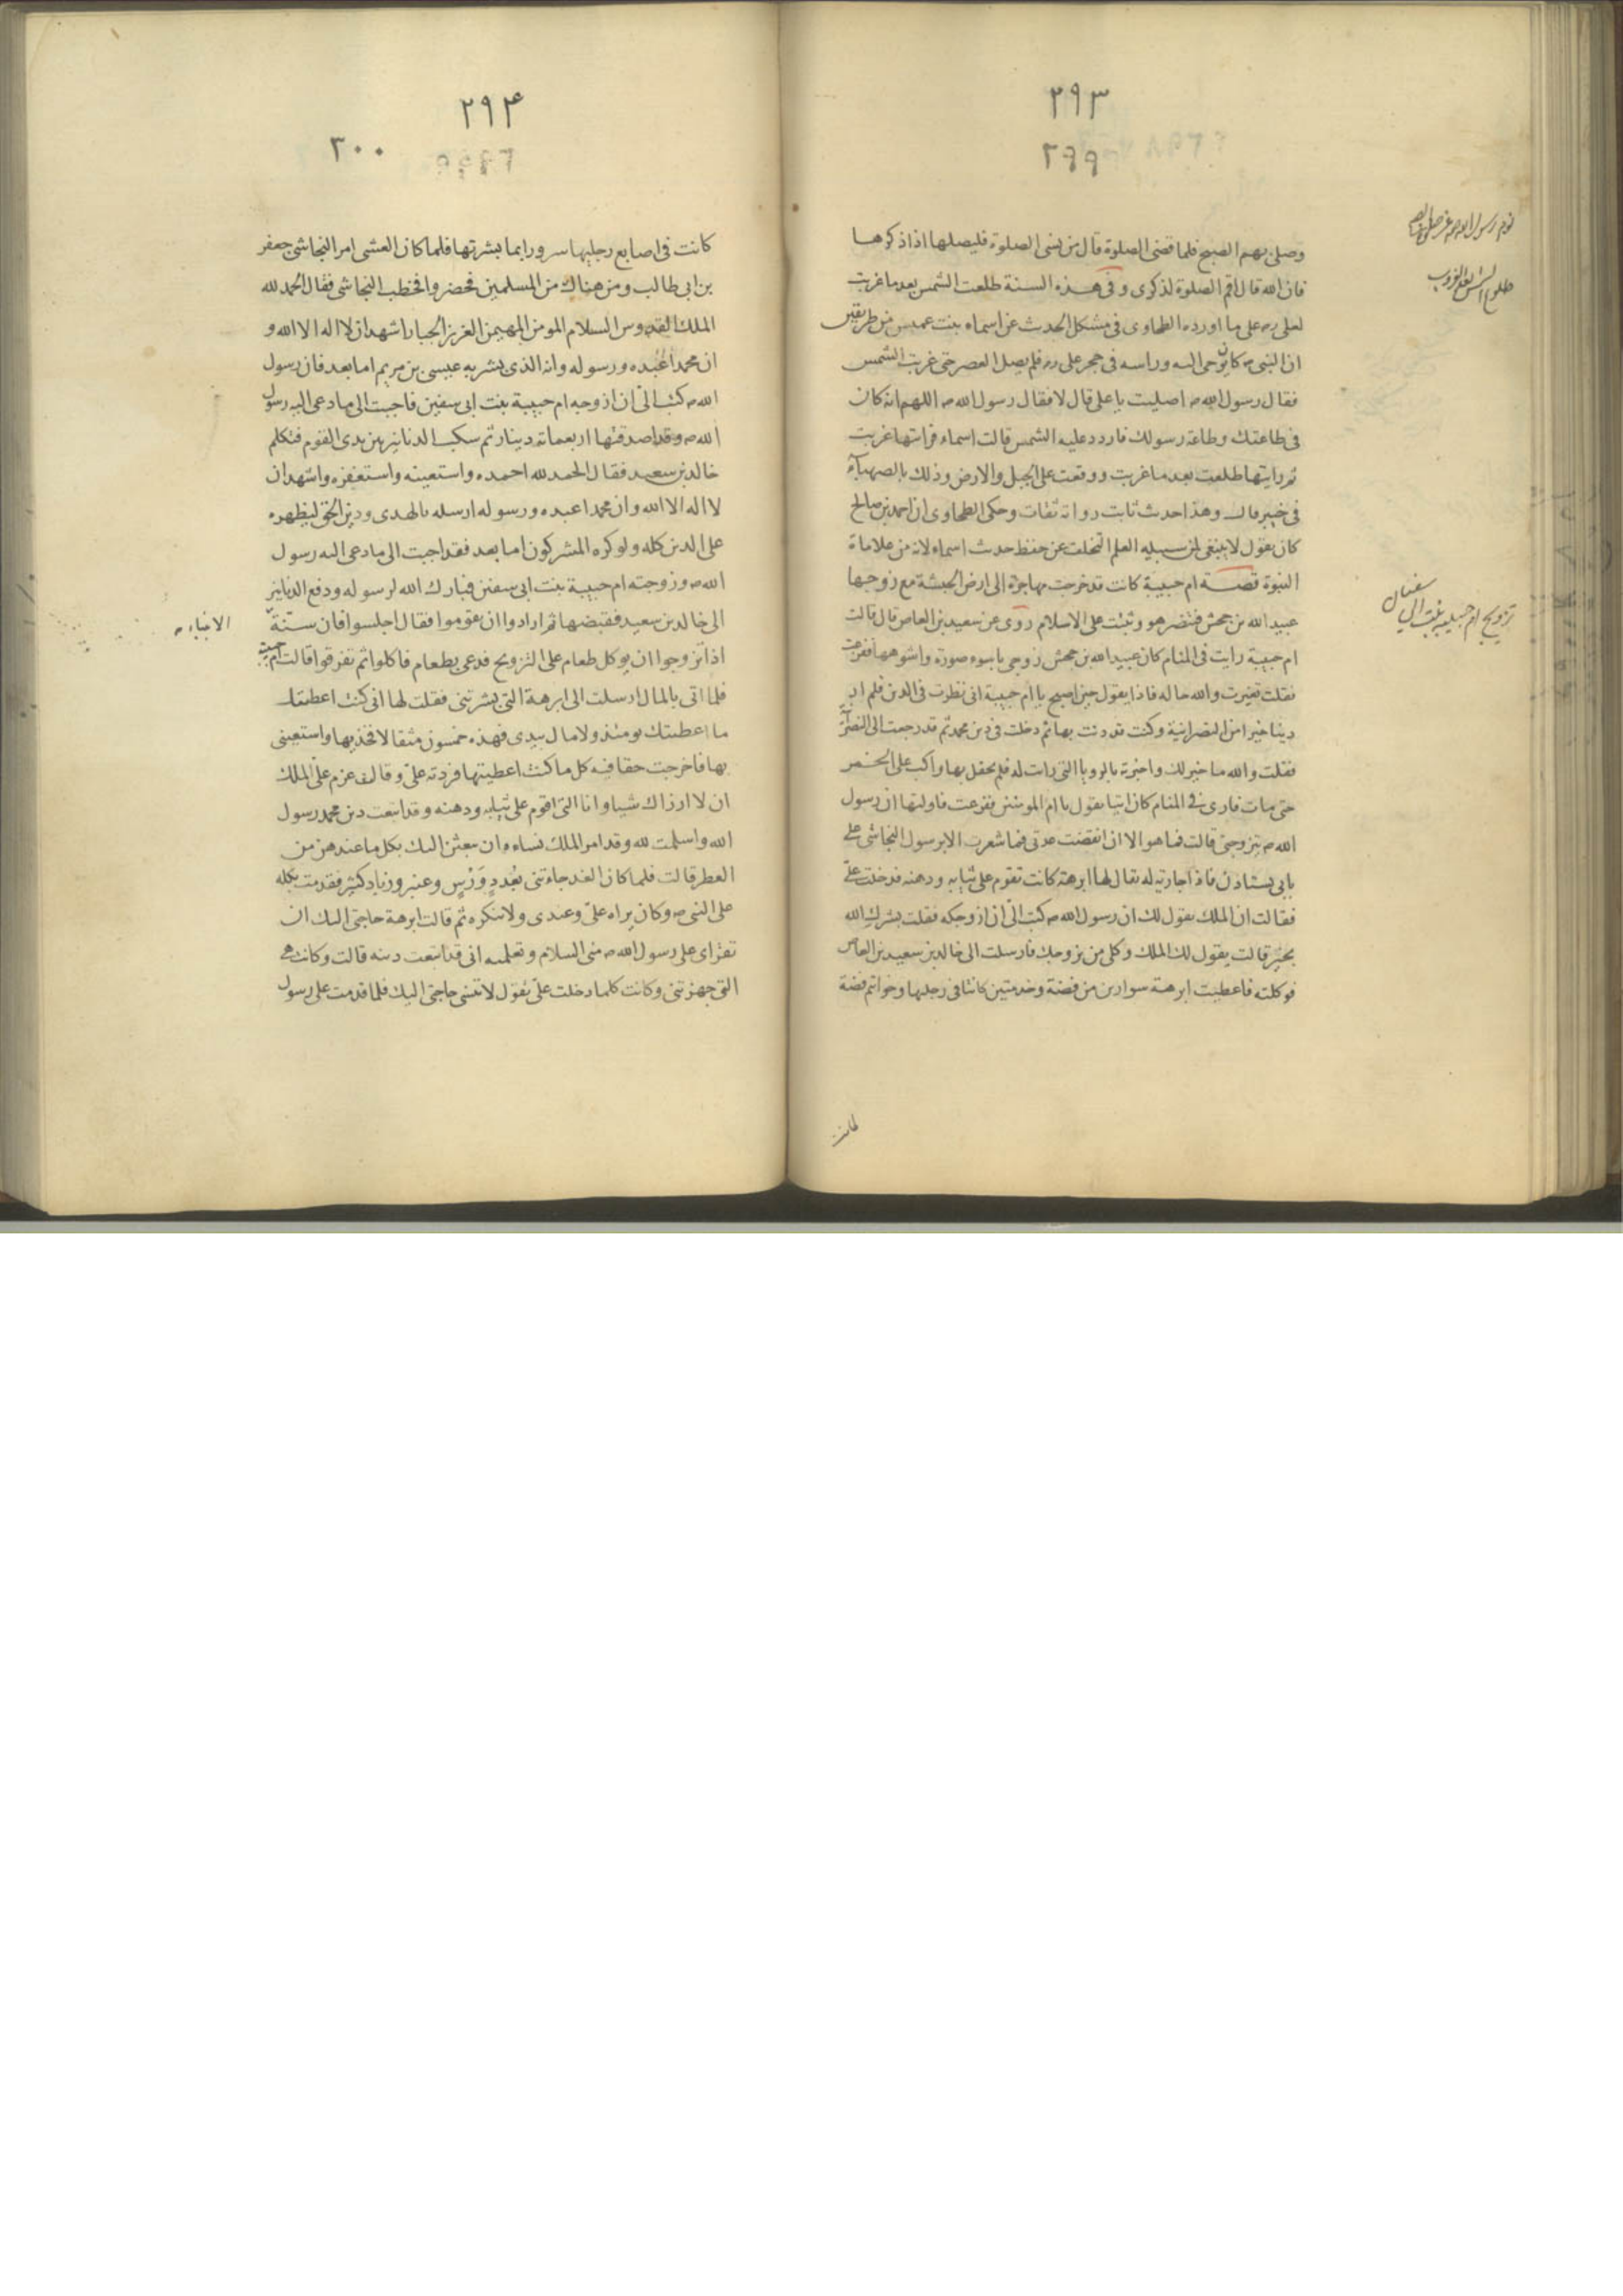 ٢٩٣
٢٩٩
وصلى بهم الصبح فلما قضى الصلوة قال من نسى الصلوة فليصلها اذا ذكرها
فان الله قال اقم الصلوة لذكرى وفى هذه السنة طلعت الشمس بعد ما غربت
لعلى رم على ما اورده الطحاوى فى مشكل الحدث عن اسماء بنت عميس من طريقين
ان النبى ص كان يوحى اليه وراسه فى حجر على رم فلم يصل العصر حتى غربت الشمس
فقال رسول الله ص اصليت يا على قال لا فقال رسول الله ص اللهم انه كان
فى طاعتك وطاعة رسولك فاردد عليه الشمس قالت اسماء فرايتها غربت
ثم رايتها طلعت بعد ما غربت ووقعت على الجبل والارض وذلك بالصهباء
فى خيبر قال وهذا حدث ثابت رواته ثقات وحكى الطحاوى ان احمد بن صالح
كان يقول لا ينبغى لمن سبيله العلم التخلف عن حفظ حدث اسماء لانه من علامات
النبوة قصة ام حبيبة كانت قد خرجت مهاجرة الى ارض الحبشة مع زوجها
عبيد الله بن جحش فتنصر هو وثبتت على الاسلام روى عن سعيد بن العاص قال قالت
ام حبيبة رايت فى المنام كان عبيد الله بن جحش زوجى باسوء صورة واشوهها ففزعت
فقلت تغيرت والله حاله فاذا يقول حين اصبح يا ام حبيبة انى نظرت فى الدين فلم ار
دينا خيرا من النصرانية وكنت قد دنت بها ثم دخلت فى دين محمد ثم قد رجعت الى النصرانية
فقلت والله ما خير لك واخبرته بالرويا التى رات له فلم يحفل بها واكب على الخمر
حتى مات فارى فى المنام كان اتيا يقول يا ام المومنين ففزعت فاولتها ان رسول
الله ص يتزوجنى قالت فما هو الا ان انقضت عدتى فما شعرت الا برسول النجاشى على
بابى يستاذن فاذا جارية له يقال لها ابرهة كانت تقوم على ثيابه ودهنه فدخلت على
فقالت ان الملك يقول لك ان رسول الله ص كتب الى ان ازوجكه فقلت بشرك الله
بخير قالت يقول لك الملك وكلى من يزوجك فارسلت الى خالد بن سعيد بن العاص
فوكلته فاعطيت ابرهة سوارين من فضة وخدمتين كانتا فى رجليها وخواتم فضة
كانت
طلوع الشمس بعد الغروب
تزويج ام حبيبة بنت ابى سفيان
٢٩۴
٣٠٠
كانت فى اصابع رجليها سرورا بما بشرتها فلما كان العشى امر النجاشى جعفر
بن ابى طالب ومن هناك من المسلمين فحضروا فخطب النجاشى فقال الحمد لله
الملك القدوس السلام المومن المهيمن العزيز الجبار اشهد ان لا اله الا الله و
ان محمدا عبده ورسوله وانه الذى بشر به عيسى بن مريم اما بعد فان رسول
الله ص كتب الى ان ازوجه ام حبيبة بنت ابى سفين فاجبت الى ما دعى اليه رسول
الله ص وقد اصدقتها اربعماته دينار ثم سكب الدنانير بين يدى القوم فتكلم
خالد بن سعيد فقال الحمد لله احمده واستعينه واستغفره واشهد ان
لا اله الا الله وان محمدا عبده ورسوله ارسله بالهدى ودين الحق ليظهره
على الدين كله ولو كره المشركون اما بعد فقد اجبت الى ما دعى اليه رسول
الله ص وزوجته ام حبيبة بنت ابى سفين فبارك الله لرسوله ودفع الدنانير
الى خالد بن سعيد فقبضها ثم ارادوا ان يقوموا فقال اجلسوا فان سنة
الانبياء م
اذا تزوجوا ان يوكل طعام على التزويج فدعى بطعام فاكلوا ثم تفرقوا قالت ام حبيبة
فلما اتى بالمال ارسلت الى ابرهة التى بشرتنى فقلت لها انى كنت اعطيتك
ما اعطيتك يومئذ ولا مال بيدى فهذه خمسون مثقالا فخذيها واستعينى
بها فاخرجت حقا فيه كل ما كنت اعطيتها فردته على وقالت عزم على الملك
ان لا ارزاك شيا وانا التى اقوم على ثيابه ودهنه وقد اتبعت دين محمد رسول
الله واسلمت لله وقد امر الملك نساءه ان يبعثن اليك بكل ما عندهن من
العطر قالت فلما كان الغد جاءتنى بعُددٍ وَرْسٍ وعنبر وزباد كثير فقدمت بكله
على النبى ص وكان يراه على وعندى ولا ينكره ثم قالت ابرهة حاجتى اليك ان
تقراى على رسول الله ص منى السلام وتعلميه انى قد اتبعت دينه قالت وكانت هى
التى جهزتنى وكانت كلما دخلت على تقول لا تنسى حاجتى اليك فلما قدمت على رسول